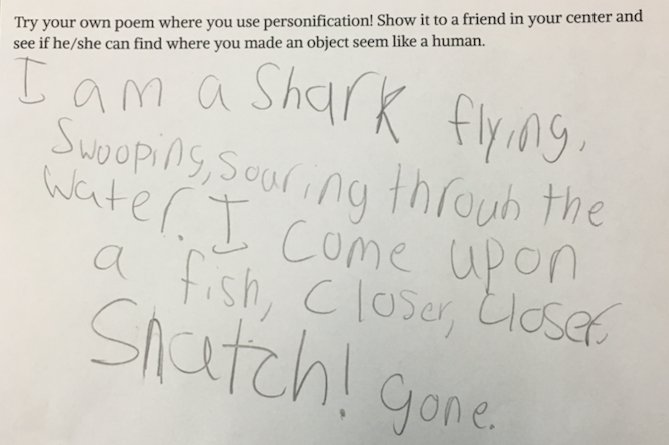 Try your own poem where you use personification! Show it to a friend in your center and
see if he/she can find where you made an object seem like a human.
I am a Shark flying,
Swooping, Soaring throuh the
Water. I Come upon
a fish, Closer, Closer.
Snatch! gone.